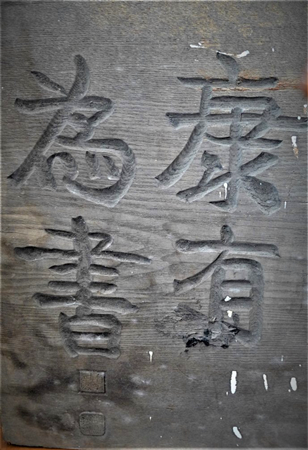 康有
為書